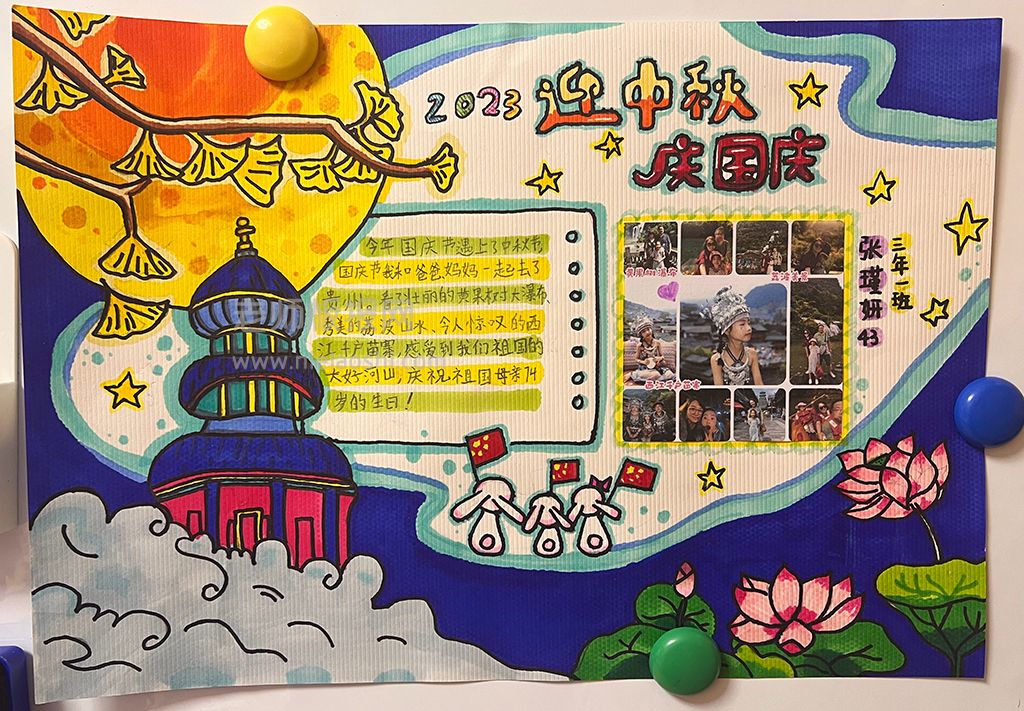 2023 迎中秋
庆国庆
今年国庆节遇上了中秋节,
国庆节我和爸爸妈妈一起去了
贵州, 看了壮丽的黄果树大瀑布、
秀美的荔波山水、令人惊叹的西
江千户苗寨,感受到我们祖国的
大好河山,庆祝祖国母亲74
岁的生日!
黄果树瀑布
荔波美景
西江千户苗寨
三年一班
张瑾妍 43